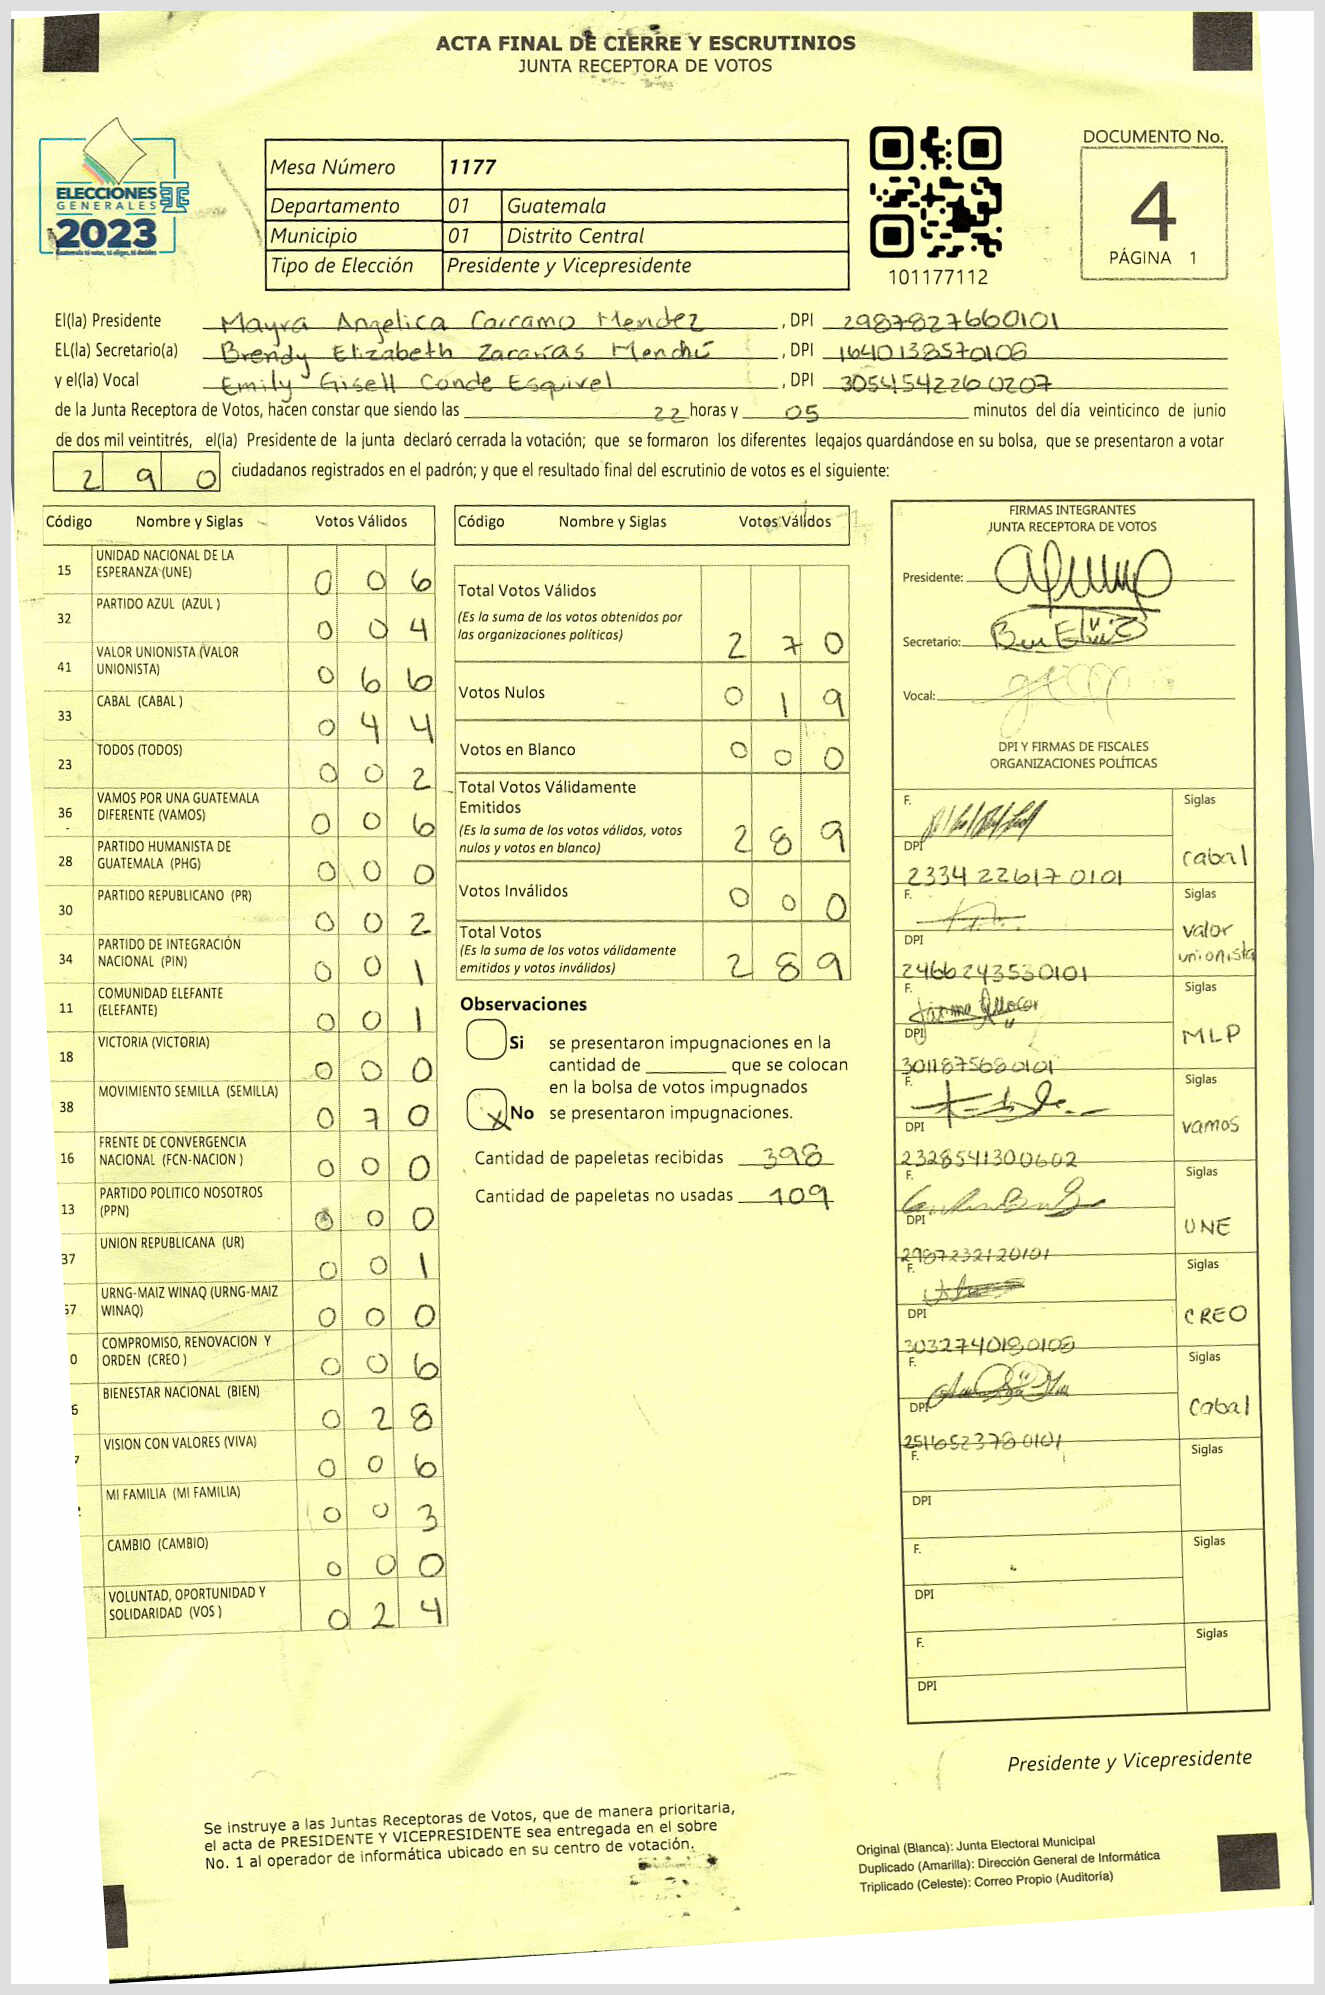 ACTA FINAL DE CIERRE Y ESCRUTINIOS
JUNTA RECEPTORA DE VOTOS
ELECCIONES
GENERALES
2023
Mesa Número 1177
Departamento 01 Guatemala
Municipio 01 Distrito Central
Tipo de Elección Presidente y Vicepresidente
101177112
DOCUMENTO No.
4
PÁGINA 1
El(la) Presidente Mayra Angelica Carcamo Mendez, DPI 2987827660101
EL(la) Secretario(a) Brendy Elizabeth Zacarías Menchú, DPI 1640138570108
y el(la) Vocal Emily Gisell Conde Esquivel, DPI 3054154220207
de la Junta Receptora de Votos, hacen constar que siendo las 22 horas y 05 minutos del día veinticinco de junio
de dos mil veintitrés, el(la) Presidente de la junta declaró cerrada la votación; que se formaron los diferentes legajos guardándose en su bolsa, que se presentaron a votar
290 ciudadanos registrados en el padrón; y que el resultado final del escrutinio de votos es el siguiente:
Código Nombre y Siglas Votos Válidos
15 UNIDAD NACIONAL DE LA
ESPERANZA (UNE) 0 0 6
32 PARTIDO AZUL (AZUL ) 0 0 4
41 VALOR UNIONISTA (VALOR
UNIONISTA) 0 6 6
33 CABAL (CABAL ) 0 4 4
23 TODOS (TODOS) 0 0 2
36 VAMOS POR UNA GUATEMALA
DIFERENTE (VAMOS) 0 0 6
28 PARTIDO HUMANISTA DE
GUATEMALA (PHG) 0 0 0
30 PARTIDO REPUBLICANO (PR) 0 0 2
34 PARTIDO DE INTEGRACIÓN
NACIONAL (PIN) 0 0 1
11 COMUNIDAD ELEFANTE
(ELEFANTE) 0 0 1
18 VICTORIA (VICTORIA) 0 0 0
38 MOVIMIENTO SEMILLA (SEMILLA) 0 7 0
16 FRENTE DE CONVERGENCIA
NACIONAL (FCN-NACION ) 0 0 0
13 PARTIDO POLITICO NOSOTROS
(PPN) 0 0 0
37 UNION REPUBLICANA (UR) 0 0 1
URNG-MAIZ WINAQ (URNG-MAIZ
WINAQ) 0 0 0
COMPROMISO, RENOVACION Y
ORDEN (CREO ) 0 0 6
BIENESTAR NACIONAL (BIEN) 0 2 8
VISION CON VALORES (VIVA) 0 0 6
MI FAMILIA (MI FAMILIA) 0 0 3
CAMBIO (CAMBIO) 0 0 0
VOLUNTAD, OPORTUNIDAD Y
SOLIDARIDAD (VOS ) 0 2 4
Código Nombre y Siglas Votos Válidos
Total Votos Válidos
(Es la suma de los votos obtenidos por
las organizaciones políticas) 2 7 0
Votos Nulos 0 1 9
Votos en Blanco 0 0 0
Total Votos Válidamente
Emitidos
(Es la suma de los votos válidos, votos
nulos y votos en blanco) 2 8 9
Votos Inválidos 0 0 0
Total Votos
(Es la suma de los votos válidamente
emitidos y votos inválidos) 2 8 9
Observaciones
Si se presentaron impugnaciones en la
cantidad de ________ que se colocan
en la bolsa de votos impugnados
X No se presentaron impugnaciones.
Cantidad de papeletas recibidas 398
Cantidad de papeletas no usadas 109
FIRMAS INTEGRANTES
JUNTA RECEPTORA DE VOTOS
Presidente:
Secretario:
Vocal:
DPI Y FIRMAS DE FISCALES
ORGANIZACIONES POLÍTICAS
F. Siglas
DPI cabal
2334226170101
F. Siglas
DPI valor
unionista
2466243530101
F. Siglas
DPI MLP
3011875680101
F. Siglas
DPI vamos
2328541300602
F. Siglas
DPI UNE
2987232120101
F. Siglas
DPI CREO
3032740180108
F. Siglas
DPI cabal
25116523780101
F. Siglas
DPI
F. Siglas
DPI
F. Siglas
DPI
Presidente y Vicepresidente
Se instruye a las Juntas Receptoras de Votos, que de manera prioritaria,
el acta de PRESIDENTE Y VICEPRESIDENTE sea entregada en el sobre
No. 1 al operador de informática ubicado en su centro de votación.
Original (Blanca): Junta Electoral Municipal
Duplicado (Amarilla): Dirección General de Informática
Triplicado (Celeste): Correo Propio (Auditoría)